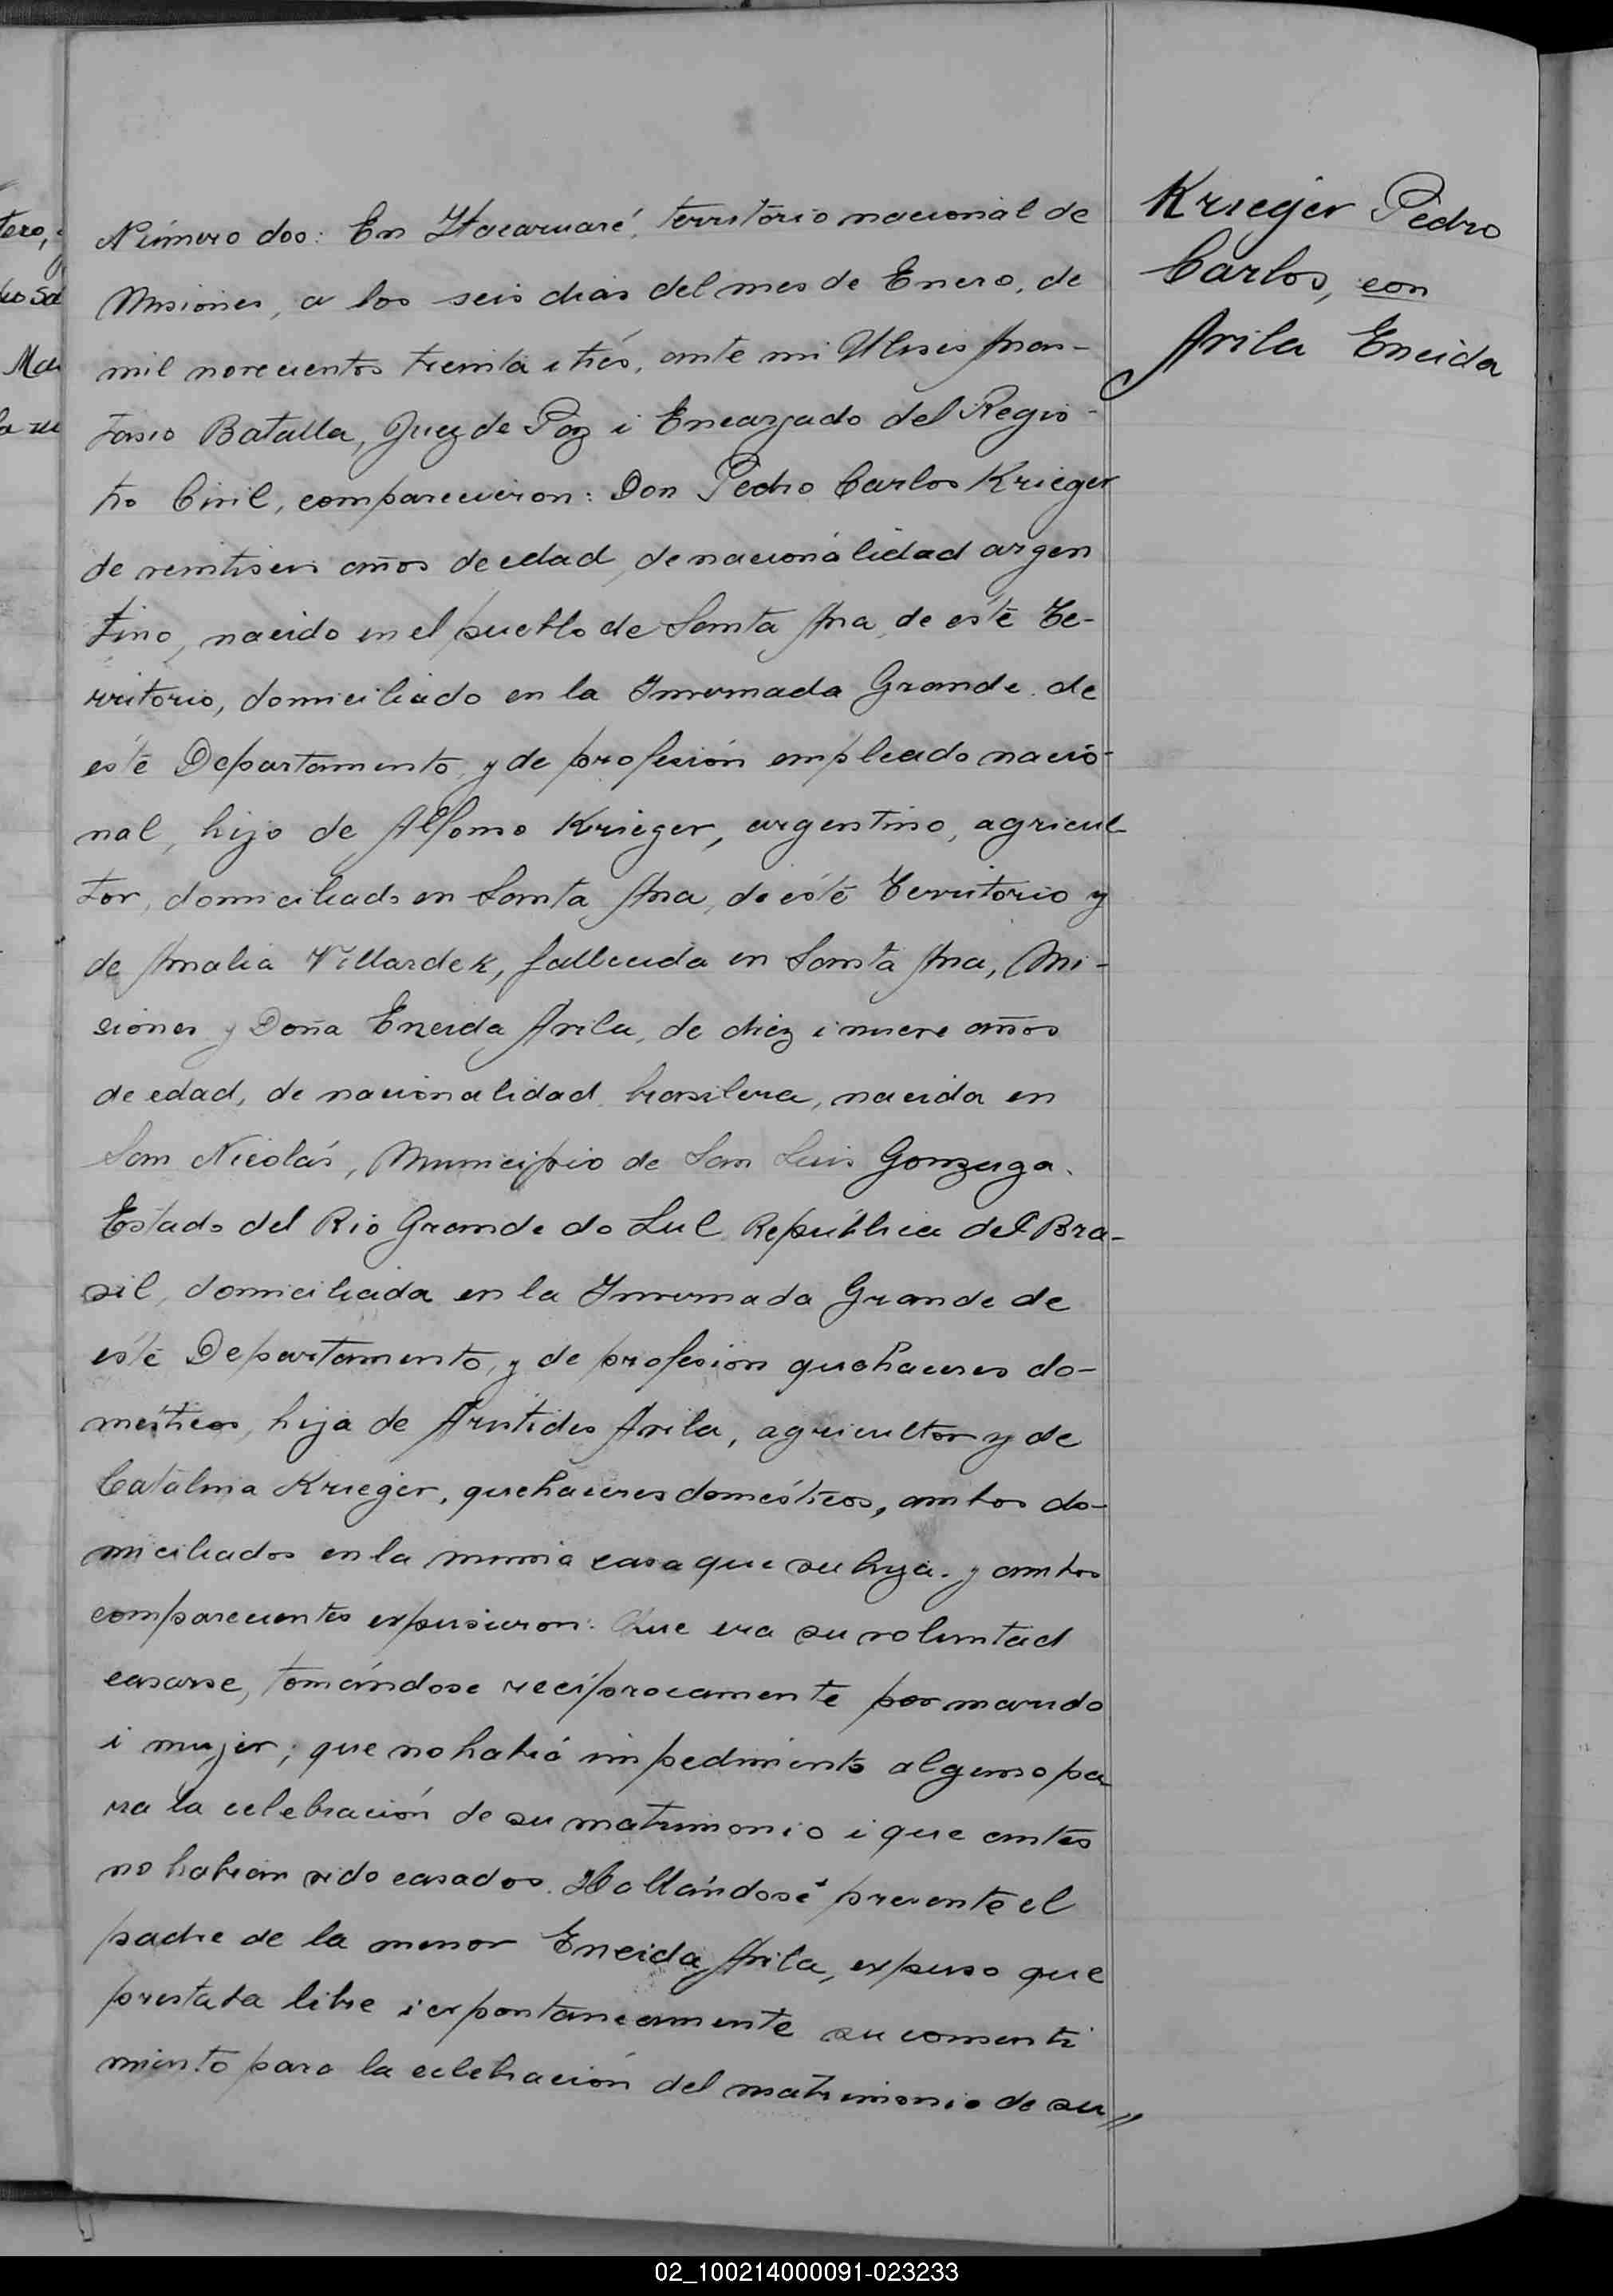 Krieger Pedro
Carlos, con
Avila Eneida
Número dos: En Itacaruaré, territorio nacional de
Misiones, a los seis dias del mes de Enero, de
mil novecientos treinta i trés, ante mi Ulises Anas-
tasio Batalla, Juez de Paz i Encargado del Regis-
tro Civil, comparecieron: Don Pedro Carlos Krieger
de veintiseis años de edad, de nacionalidad argen
tino, nacido en el pueblo de Santa Ana, de éste Te-
rritorio, domiciliado en la Invernada Grande de
éste Departamento, y de profesión empleado nacio-
nal, hijo de Alfonso Krieger, argentino, agricul-
tor, domiciliado en Santa Ana, de éste Territorio y
de Amalia Villardek, fallecida en Santa Ana, Mi-
siones y Doña Eneida Avila, de diez i nueve años
de edad, de nacionalidad brasilera, nacida en
San Nicolás, Municipio de San Luis Gonzaga.
Estado del Rio Grande do Sul República del Bra-
sil, domiciliada en la Invernada Grande de
éste Departamento, y de profesión quehaceres do-
mésticos, hija de Aristides Avila, agricultor y de
Catalina Krieger, quehaceres domésticos, ambos do-
miciliados en la misma casa que su hija. y ambos
comparecientes expusieron: Que era su voluntad
casarse, tomándose recíprocamente por marido
i mujer; que no había impedimento alguno pa
ra la celebración de su matrimonio i que antes
no habian sido casados. Hallándosé presente el
padre de la menor Eneida Avila, expuso que
prestaba libre i expontaneamente su consenti
miento para la celebración del matrimonio de su//
tero,
Ma
02_100214000091-023233